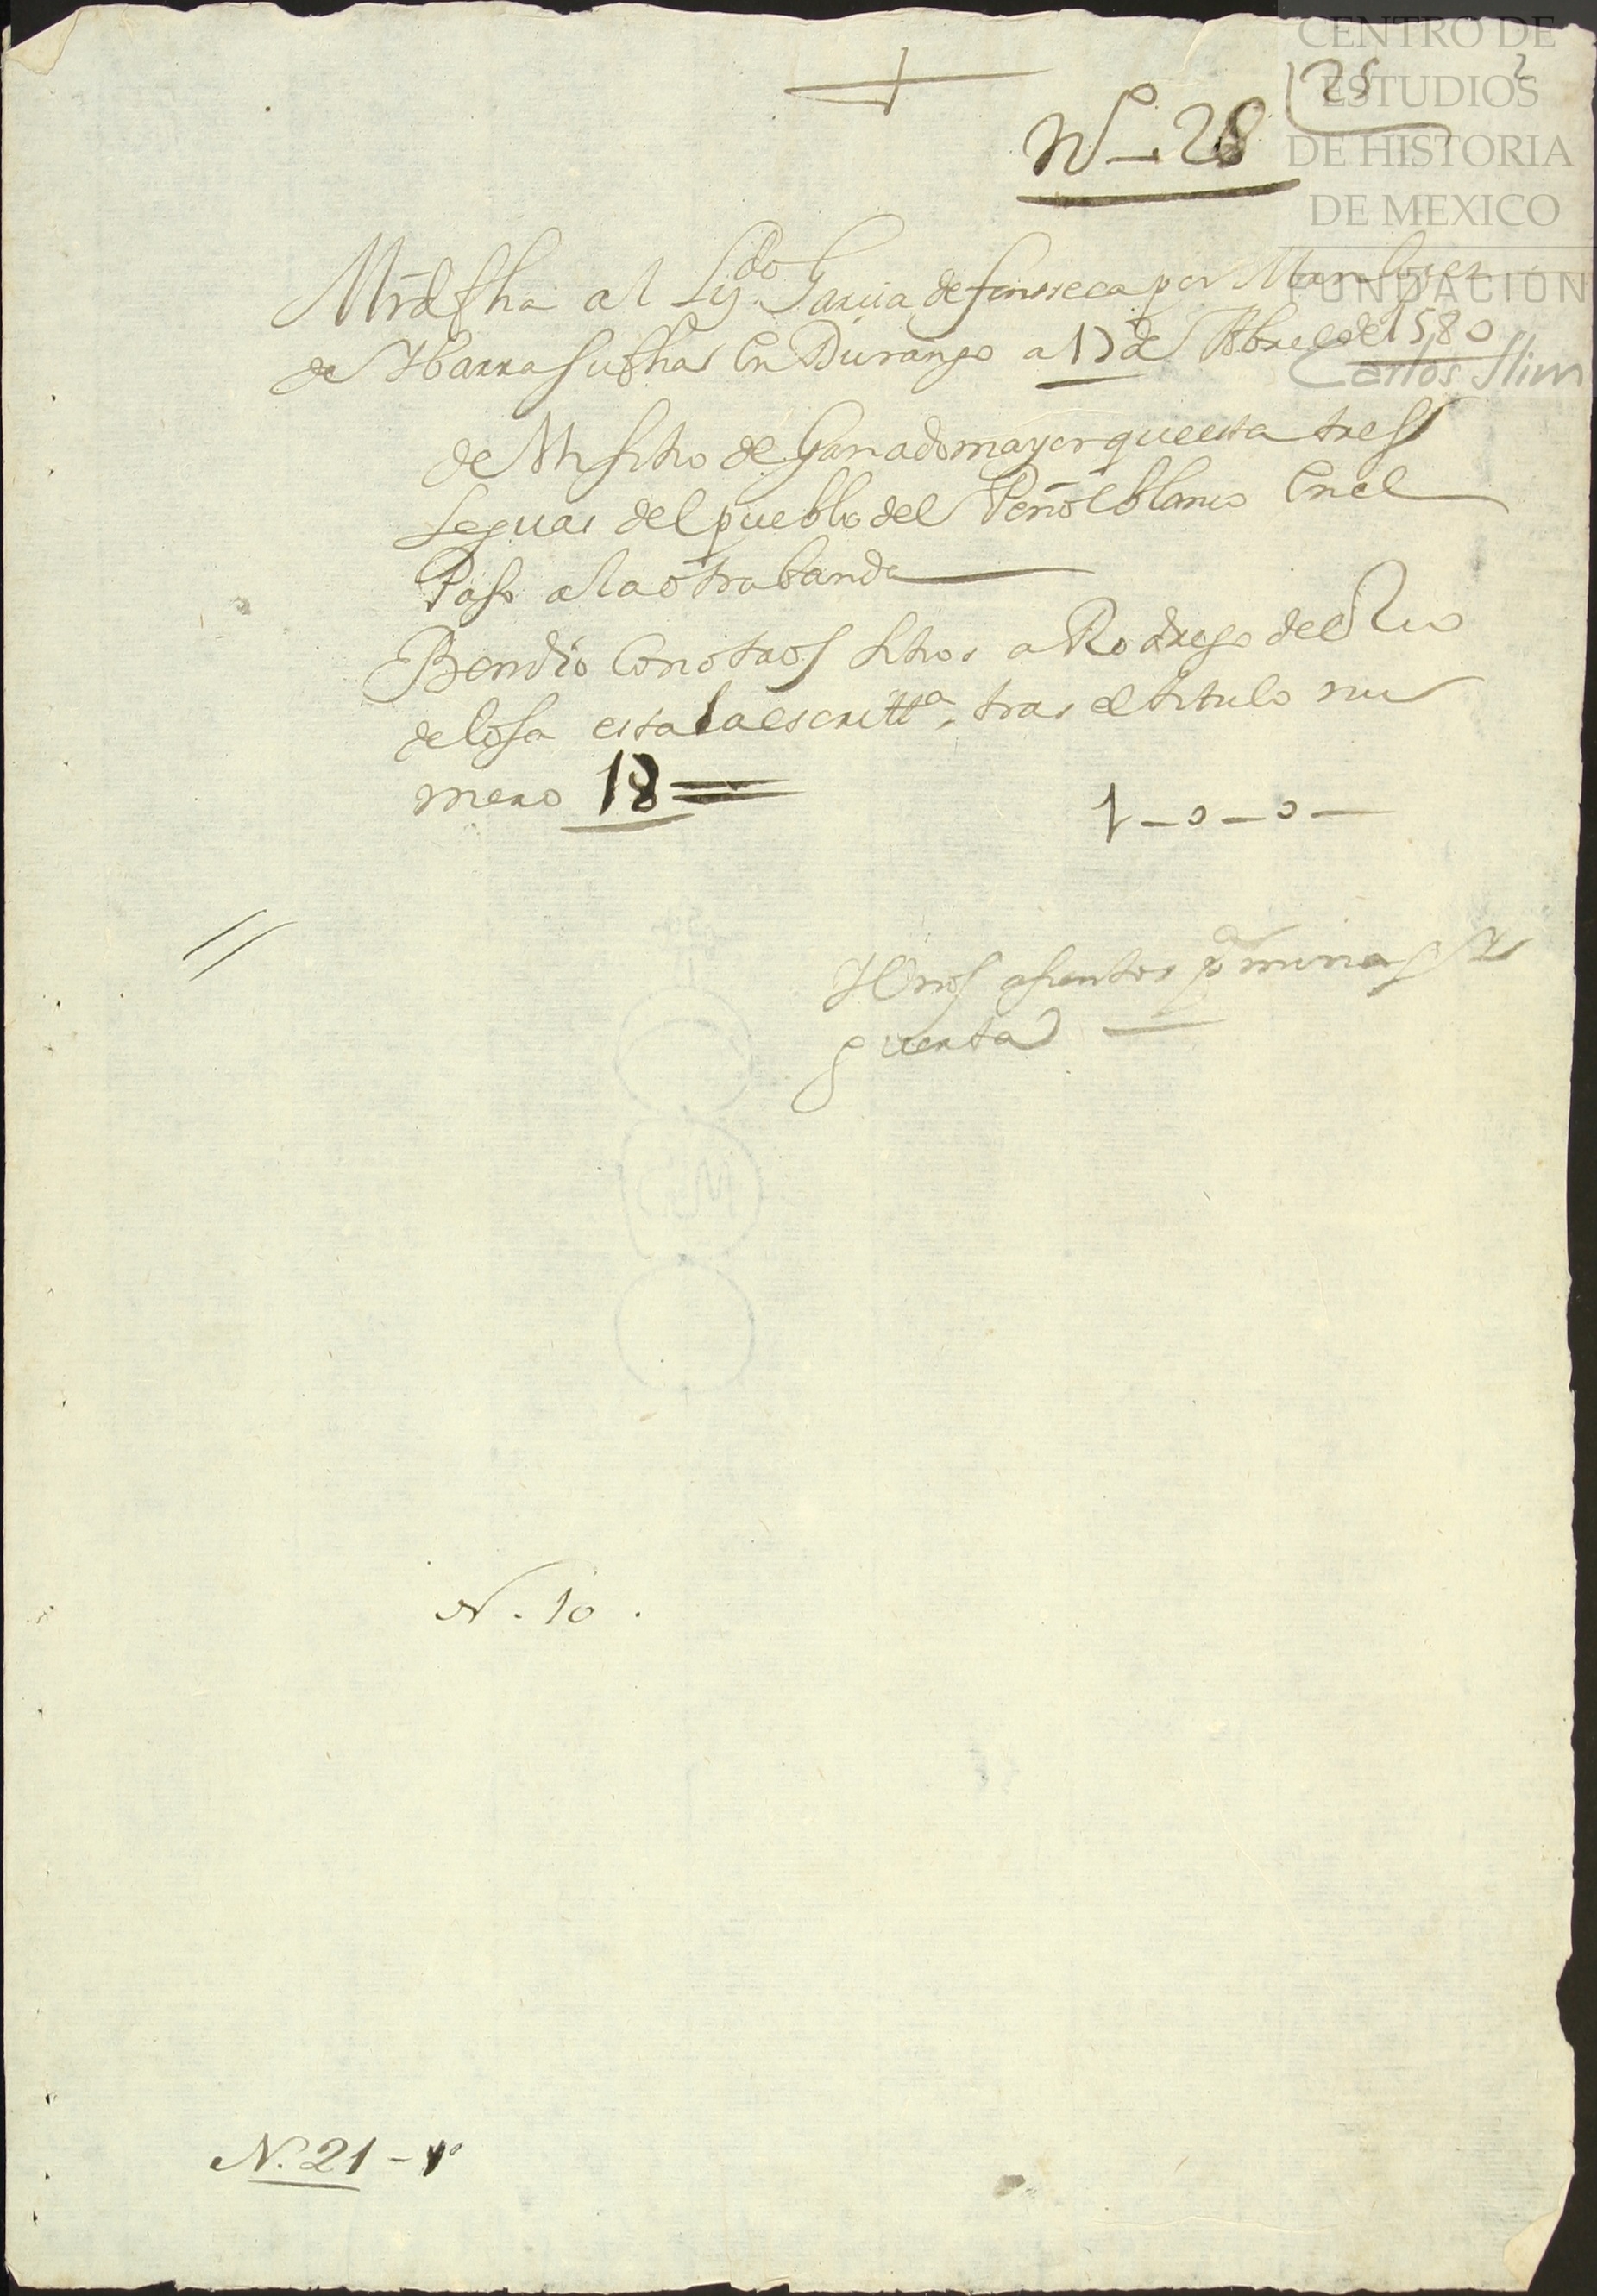 Nº - 28
25
2
CENTRO DE
ESTUDIOS
DE HISTORIA
DE MEXICO
FUNDACIÓN
Carlos Slim
Mrd fha al Lizdo Garcia de fonsseca por Martin lopez
de Ybarra su fha en Durango a 17 de Abril de 1580
de Vn sitio de Ganado mayor que esta tres
Leguas del pueblo del Peñol blanco En el
Paso a la otra banda
Bendio Con otros sitios a Rodrigo del Rio
de losa esta la escritta tras el titulo nu
mero 18
1 - 0 - 0 -
Y Vnos asientos pa minas Y
guerta
N. 10.
N. 21 -